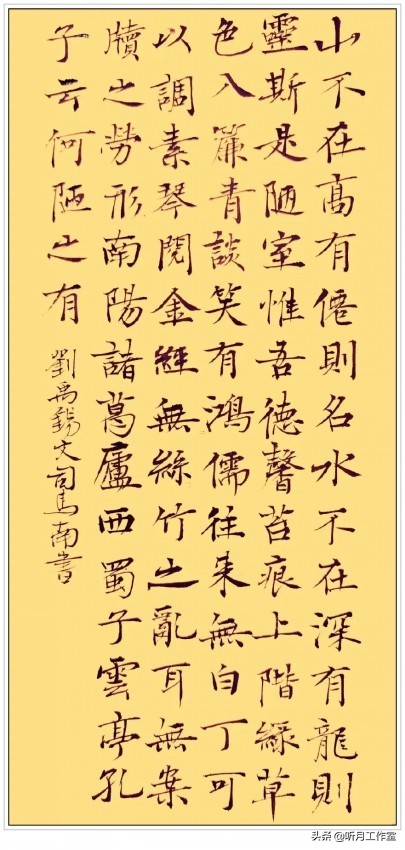 山不在高有僊則名水不在深有龍則
靈斯是陋室惟吾德馨苔痕上階綠草
色入簾青談笑有鴻儒往来無白丁可
以調素琴閱金經無絲竹之亂耳無案
牘之勞形南陽諸葛廬西蜀子雲亭孔
子云何陋之有
劉禹錫文司馬南書
头条 @听月工作室